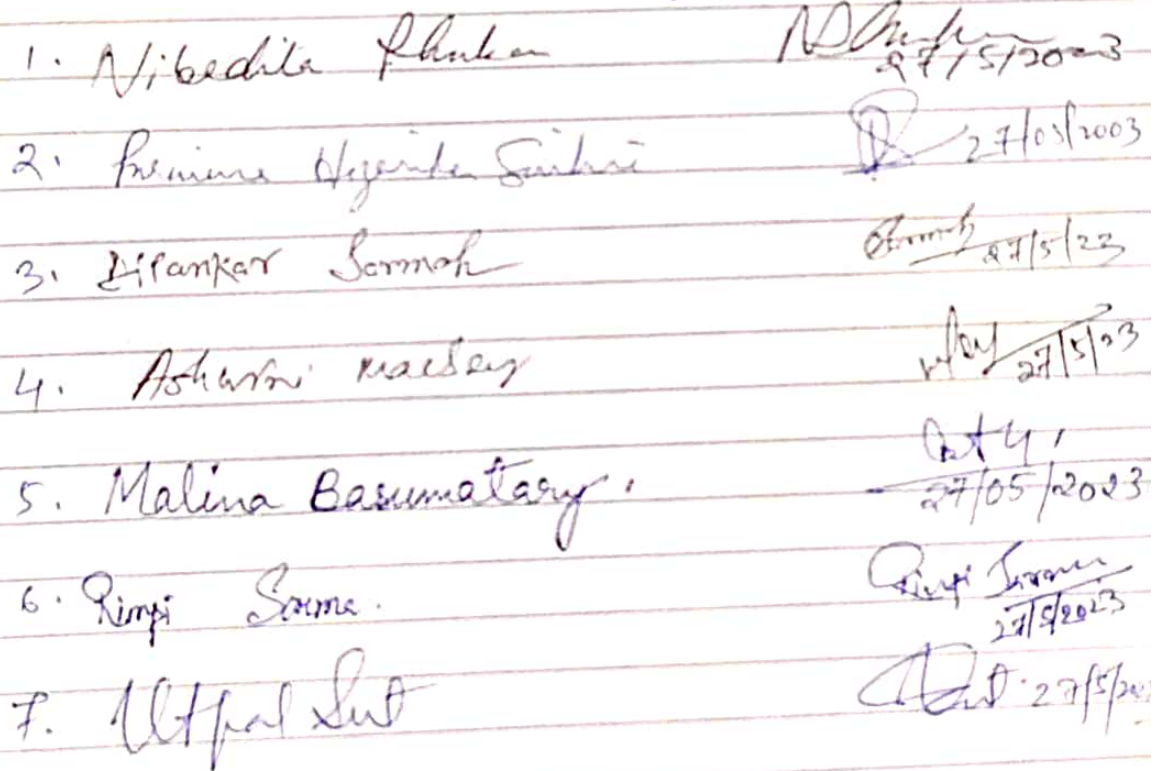 1. Nibedita Phukan 27/5/2023
2. Hazarika 27/05/2003
3. Dipankar Sarmah 27/5/23
4. Ashwini 27/5/23
5. Malina Basumatary. 27/05/2023
6. Rimpi Sarma. Rimpi Sarma 27/5/2023
7. Utpal Sut 27/5/202